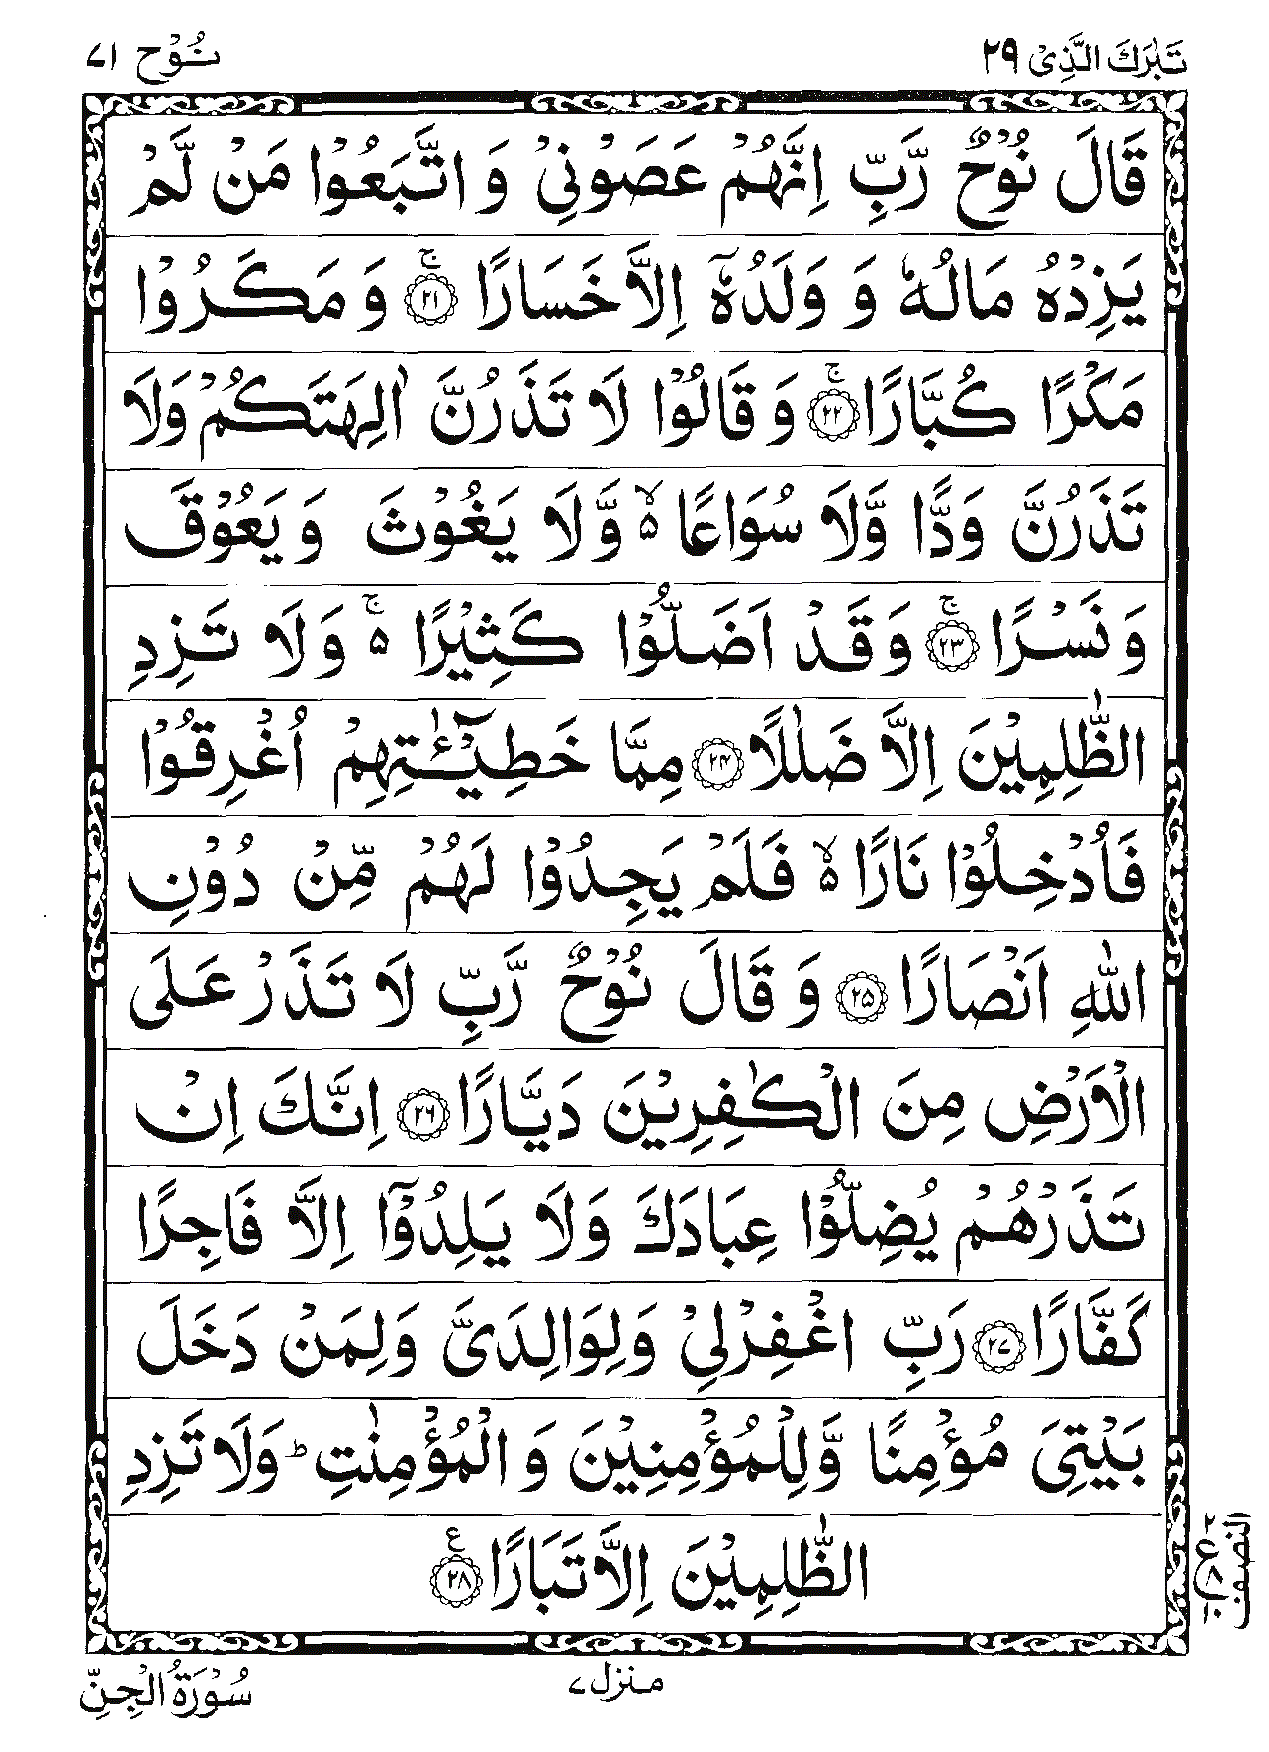 تَبٰرَكَ الَّذِیْ ۲۹
نُوْح ۷۱
قَالَ نُوْحٌ رَّبِّ اِنَّهُمْ عَصَوْنِیْ وَ اتَّبَعُوْا مَنْ لَّمْ
یَزِدْهُ مَالُهٗ وَ وَلَدُهٗۤ اِلَّا خَسَارًا ۚ‏﴿۲۱﴾ وَ مَكَرُوْا
مَكْرًا كُبَّارًا ۚ‏﴿۲۲﴾ وَ قَالُوْا لَا تَذَرُنَّ اٰلِهَتَكُمْ وَلَا
تَذَرُنَّ وَدًّا وَّلَا سُوَاعًا ۙ۵ وَّ لَا یَغُوْثَ وَ یَعُوْقَ
وَ نَسْرًا ۚ‏﴿۲۳﴾ وَ قَدْ اَضَلُّوْا كَثِیْرًا ۚ۵ وَلَا تَزِدِ
الظّٰلِمِیْنَ اِلَّا ضَلٰلًا ﴿۲۴﴾ مِمَّا خَطِیْٓـٰٔتِهِمْ اُغْرِقُوْا
فَاُدْخِلُوْا نَارًا ۙ۵ فَلَمْ یَجِدُوْا لَهُمْ مِّنْ دُوْنِ
اللّٰهِ اَنْصَارًا ﴿۲۵﴾ وَ قَالَ نُوْحٌ رَّبِّ لَا تَذَرْ عَلَی
الْاَرْضِ مِنَ الْكٰفِرِیْنَ دَیَّارًا ﴿۲۶﴾ اِنَّكَ اِنْ
تَذَرْهُمْ یُضِلُّوْا عِبَادَكَ وَلَا یَلِدُوْۤا اِلَّا فَاجِرًا
كَفَّارًا ﴿۲۷﴾ رَبِّ اغْفِرْلِیْ وَلِوَالِدَیَّ وَلِمَنْ دَخَلَ
بَیْتِیَ مُؤْمِنًا وَّلِلْمُؤْمِنِیْنَ وَ الْمُؤْمِنٰتِ ؕ وَلَا تَزِدِ
الظّٰلِمِیْنَ اِلَّا تَبَارًا ﴿۲۸﴾ ع
۲ ع ۸ ۱۰
النصف
منزل ۷
سُوْرَةُ الْجِنِّ